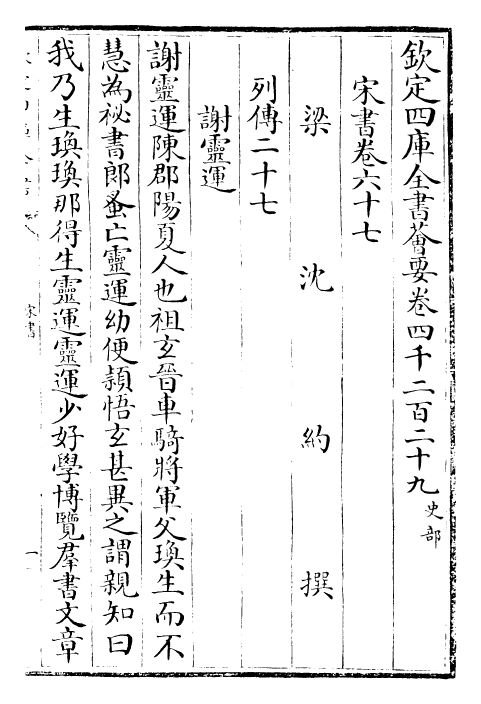 欽定四庫全書薈要卷四千二百二十九史部
宋書卷六十七
梁沈約撰
列傳二十七
謝靈運
謝靈運陳郡陽夏人也祖玄晉車騎將軍父瑍生而不
慧為祕書郎蚤亡靈運幼便頴悟玄甚異之謂親知曰
我乃生瑍瑍那得生靈運靈運少好學博覽羣書文章
宋書
一